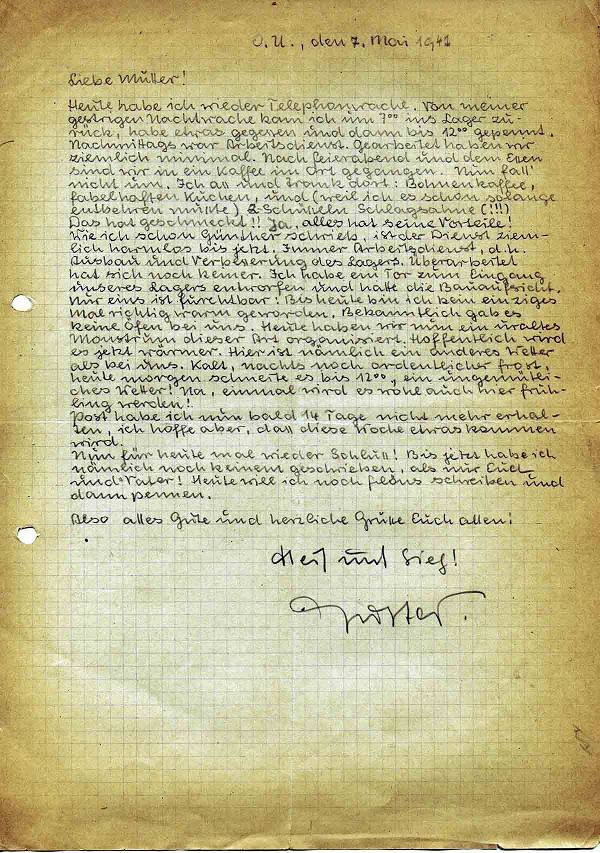 O.U., den 7. Mai 1941
Liebe Mutter!
Heute habe ich wieder Telephonwache. Von meiner
gestrigen Nachtwache kam ich um 7⁰⁰ ins Lager zu-
rück, habe etwas gegessen und dann bis 12⁰⁰ gepennt.
Nachmittags war Arbeitsdienst. Gearbeitet haben wir
ziemlich minimal. Nach Feierabend und dem Essen
sind wir in ein Kaffee im Ort gegangen. Nun fall'
nicht um. Ich aß und trank dort: Bohnenkaffee,
fabelhaften Kuchen, und (weil ich es schon solange
entbehren mußte) 2 Schüsseln Schlagsahne (!!!)
Das hat geschmeckt!! Ja, alles hat seine Vorteile!
Wie ich schon Günther schrieb, ist der Dienst ziem-
lich harmlos bis jetzt. Immer Arbeitsdienst, d.h.
Ausbau und Verbesserung des Lagers. Überarbeitet
hat sich noch keiner. Ich habe ein Tor zum Eingang
unseres Lagers entworfen und hatte die Bauaufsicht.
Nur eins ist furchtbar: Bis heute bin ich kein einziges
Mal richtig warm geworden. Bekanntlich gab es
keine Öfen bei uns. Heute haben wir nun ein uraltes
Monstrum dieser Art organisiert. Hoffentlich wird
es jetzt wärmer. Hier ist nämlich ein anderes Wetter
als bei uns. Kalt, nachts noch ordentlicher Frost,
heute morgen schneite es bis 12⁰⁰, ein ungemütli-
ches Wetter! Na, einmal wird es wohl auch hier Früh-
ling werden!
Post habe ich nun bald 14 Tage nicht mehr erhal-
ten, ich hoffe aber, daß diese Woche etwas kommen
wird.
Nun für heute mal wieder Schluß! Bis jetzt habe ich
nämlich noch keinem geschrieben, als nur Euch
und Vater! Heute will ich noch schreiben und
dann pennen.
Also alles Gute und herzliche Grüße Euch allen!
Heil und Sieg!